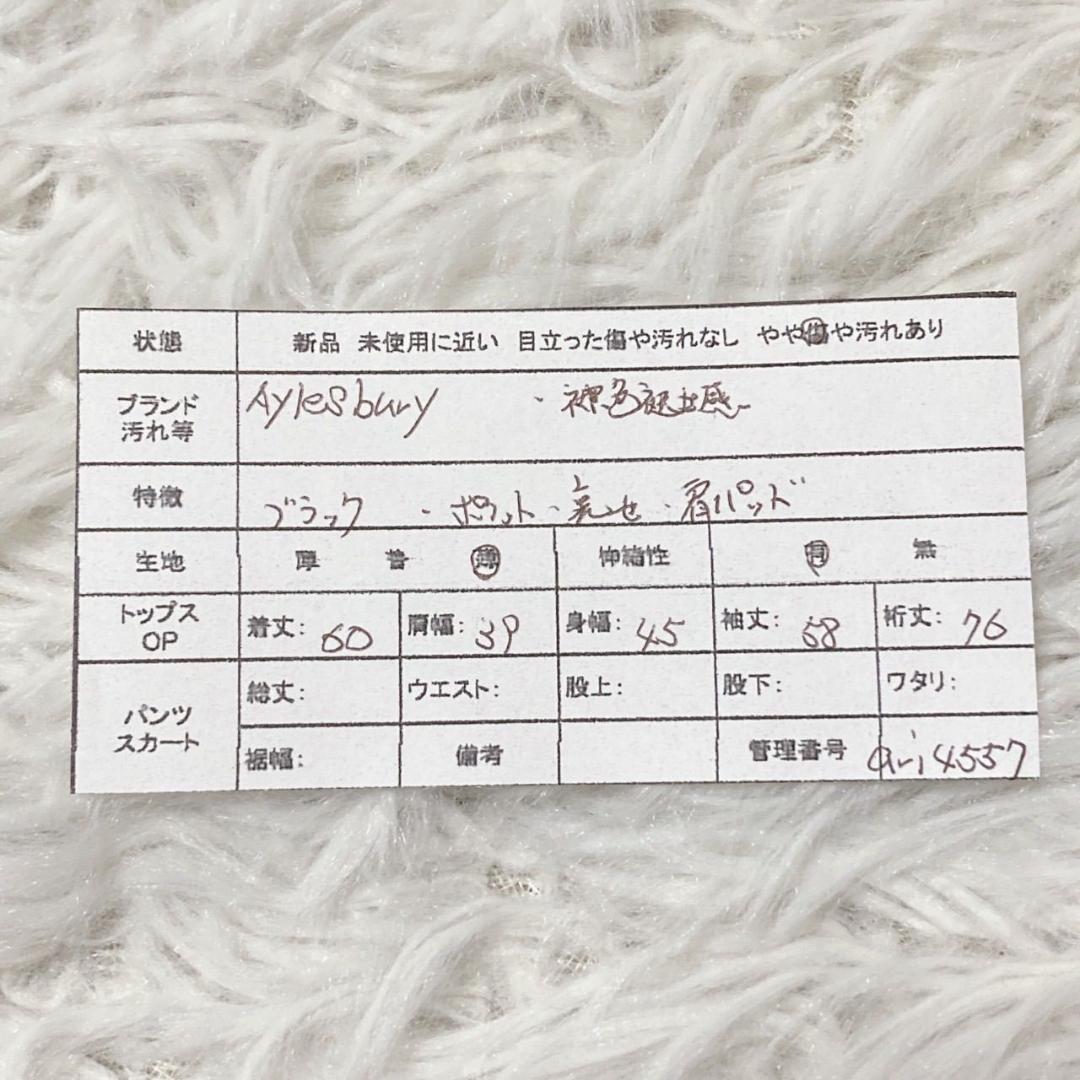 状態 新品 未使用に近い 目立った傷や汚れなし やや傷や汚れあり
ブランド Aylesbury
汚れ等
特徴 ブラック ・ポケット・裏地・肩パッド
生地 厚 普 薄 伸縮性 有 無
トップス 着丈: 60 肩幅: 39 身幅: 45 袖丈: 58 裄丈: 76
OP
パンツ 総丈: ウエスト: 股上: 股下: ワタリ:
スカート 裾幅: 備考 管理番号 ari4557